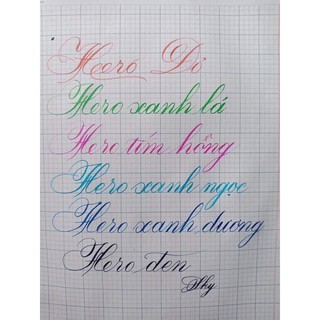 Hero Đỏ
Hero xanh lá
Hero tím hồng
Hero xanh ngọc
Hero xanh dương
Hero đen
Sky